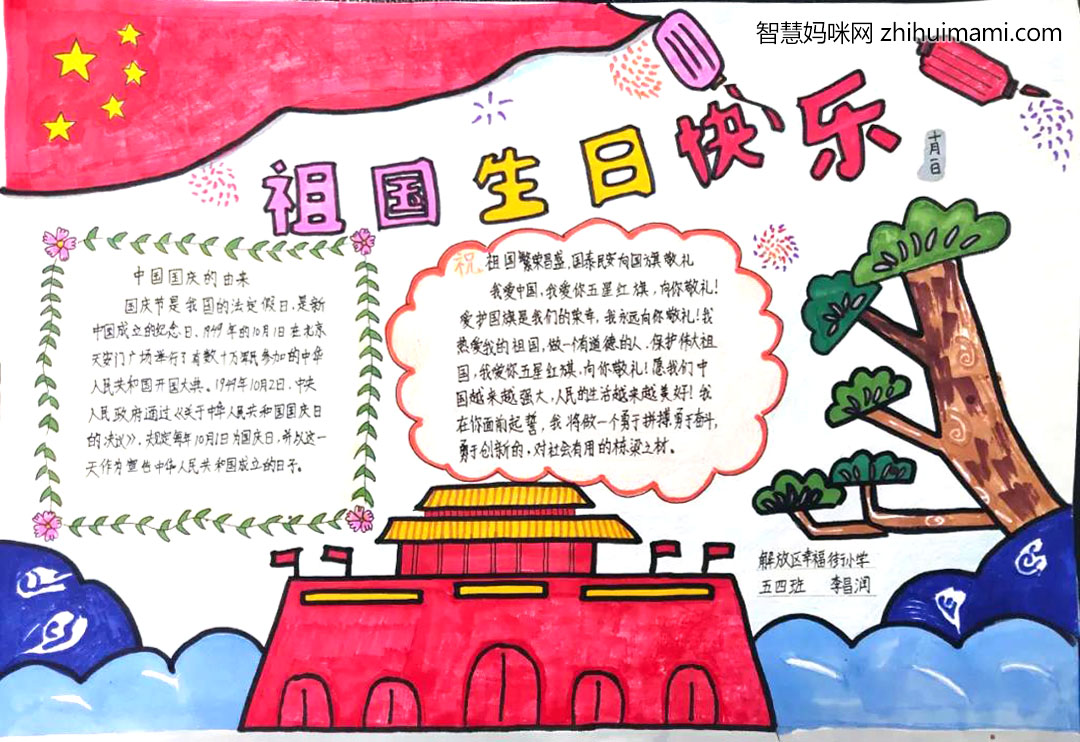 智慧妈咪网 zhihuimami.com
祖国生日快乐
十月一日
中国国庆的由来
国庆节是我国的法定假日,是新
中国成立的纪念日,1949年的10月1日在北京
天安门广场举行了有数十万军民参加的中华
人民共和国开国大典。1949年10月2日,中央
人民政府通过《关于中华人民共和国国庆日
的决议》,规定每年10月1日为国庆日,并以这一
天作为宣告中华人民共和国成立的日子。
祝祖国繁荣昌盛,国泰民安向国旗敬礼
我爱中国,我爱你五星红旗,向你敬礼!
爱护国旗是我们的荣幸,我永远向你敬礼!我
热爱我的祖国,做一个有道德的人,保护伟大祖
国,我爱你五星红旗,向你敬礼!愿我们中
国越来越强大,人民的生活越来越美好!我
在你面前起誓,我将做一个勇于拼搏,勇于奋斗,
勇于创新的,对社会有用的栋梁之材。
解放区幸福街小学
五四班 李昌润